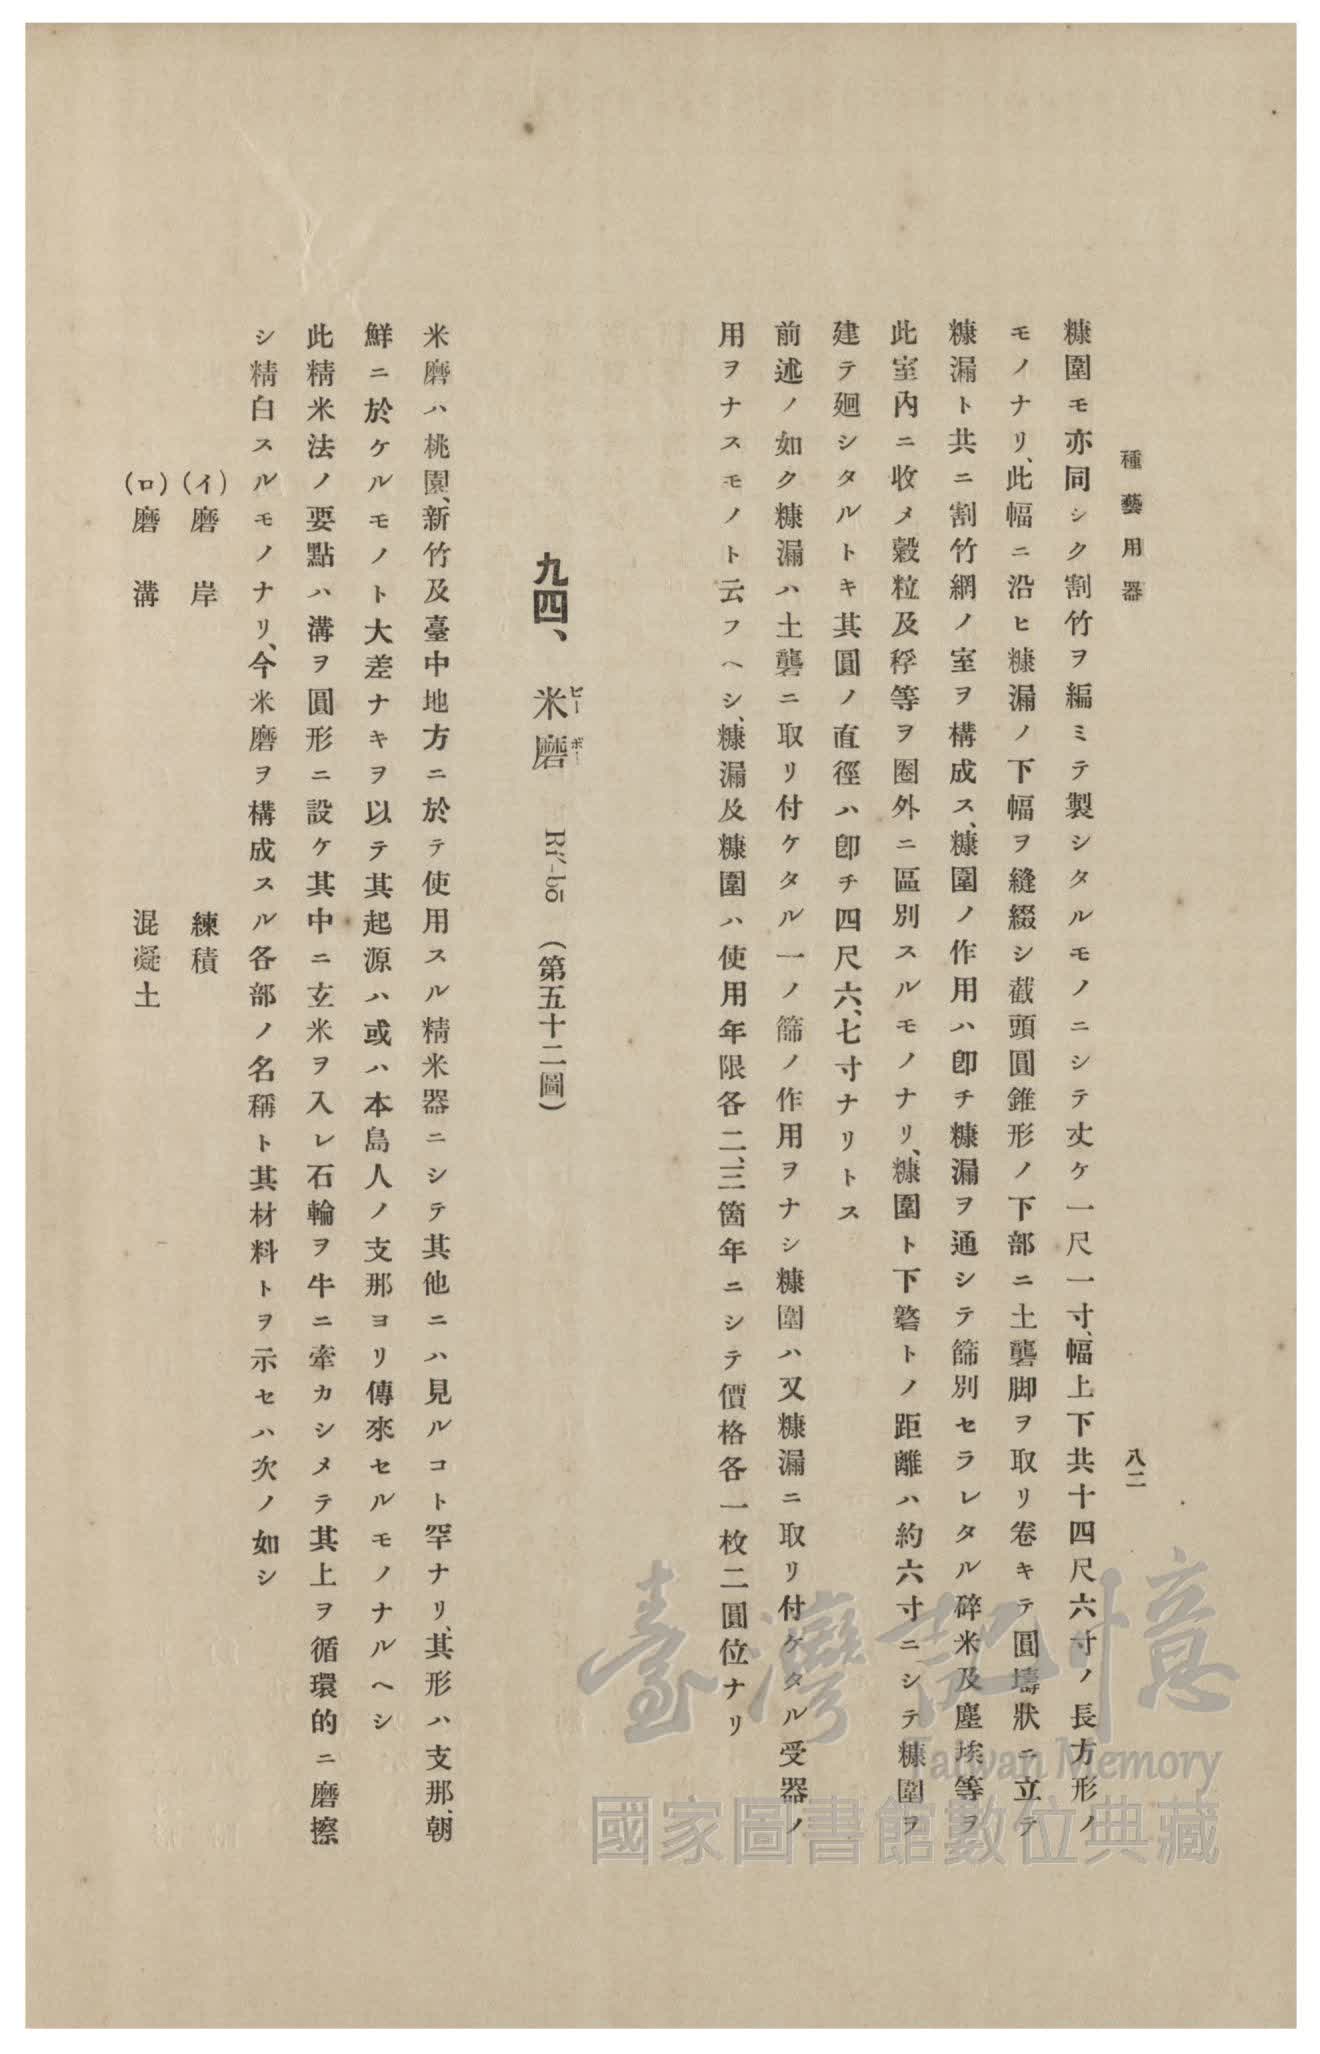 種藝用器
八二
糠圍モ亦同シク割竹ヲ編ミテ製シタルモノニシテ丈ケ一尺一寸、幅上下共十四尺六寸ノ長方形ノ
モノナリ、此幅ニ沿ヒ糠漏ノ下幅ヲ縫綴シ截頭圓錐形ノ下部ニ土礱脚ヲ取リ卷キテ圓壔狀ニ立テ
糠漏ト共ニ割竹網ノ室ヲ構成ス、糠圍ノ作用ハ卽チ糠漏ヲ通シテ篩別セラレタル碎米及塵埃等ヲ
此室內ニ收メ穀粒及稃等ヲ圈外ニ區別スルモノナリ、糠圍ト下礱トノ距離ハ約六寸ニシテ糠圍ヲ
建テ廻シタルトキ其圓ノ直徑ハ卽チ四尺六、七寸ナリトス
前述ノ如ク糠漏ハ土礱ニ取リ付ケタル一ノ篩ノ作用ヲナシ糠圍ハ又糠漏ニ取リ付ケタル受器ノ
用ヲナスモノト云フヘシ、糠漏及糠圍ハ使用年限各二、三箇年ニシテ價格各一枚二圓位ナリ
九四、米磨 ビーボー (第五十二圖)
米磨ハ桃園、新竹及臺中地方ニ於テ使用スル精米器ニシテ其他ニハ見ルコト罕ナリ、其形ハ支那、朝
鮮ニ於ケルモノト大差ナキヲ以テ其起源ハ或ハ本島人ノ支那ヨリ傳來セルモノナルヘシ
此精米法ノ要點ハ溝ヲ圓形ニ設ケ其中ニ玄米ヲ入レ石輪ヲ牛ニ牽カシメテ其上ヲ循環的ニ磨擦
シ精白スルモノナリ、今米磨ヲ構成スル各部ノ名稱ト其材料トヲ示セハ次ノ如シ
(イ)磨岸 練積
(ロ)磨溝 混凝土
臺灣記憶
Taiwan Memory
國家圖書館數位典藏